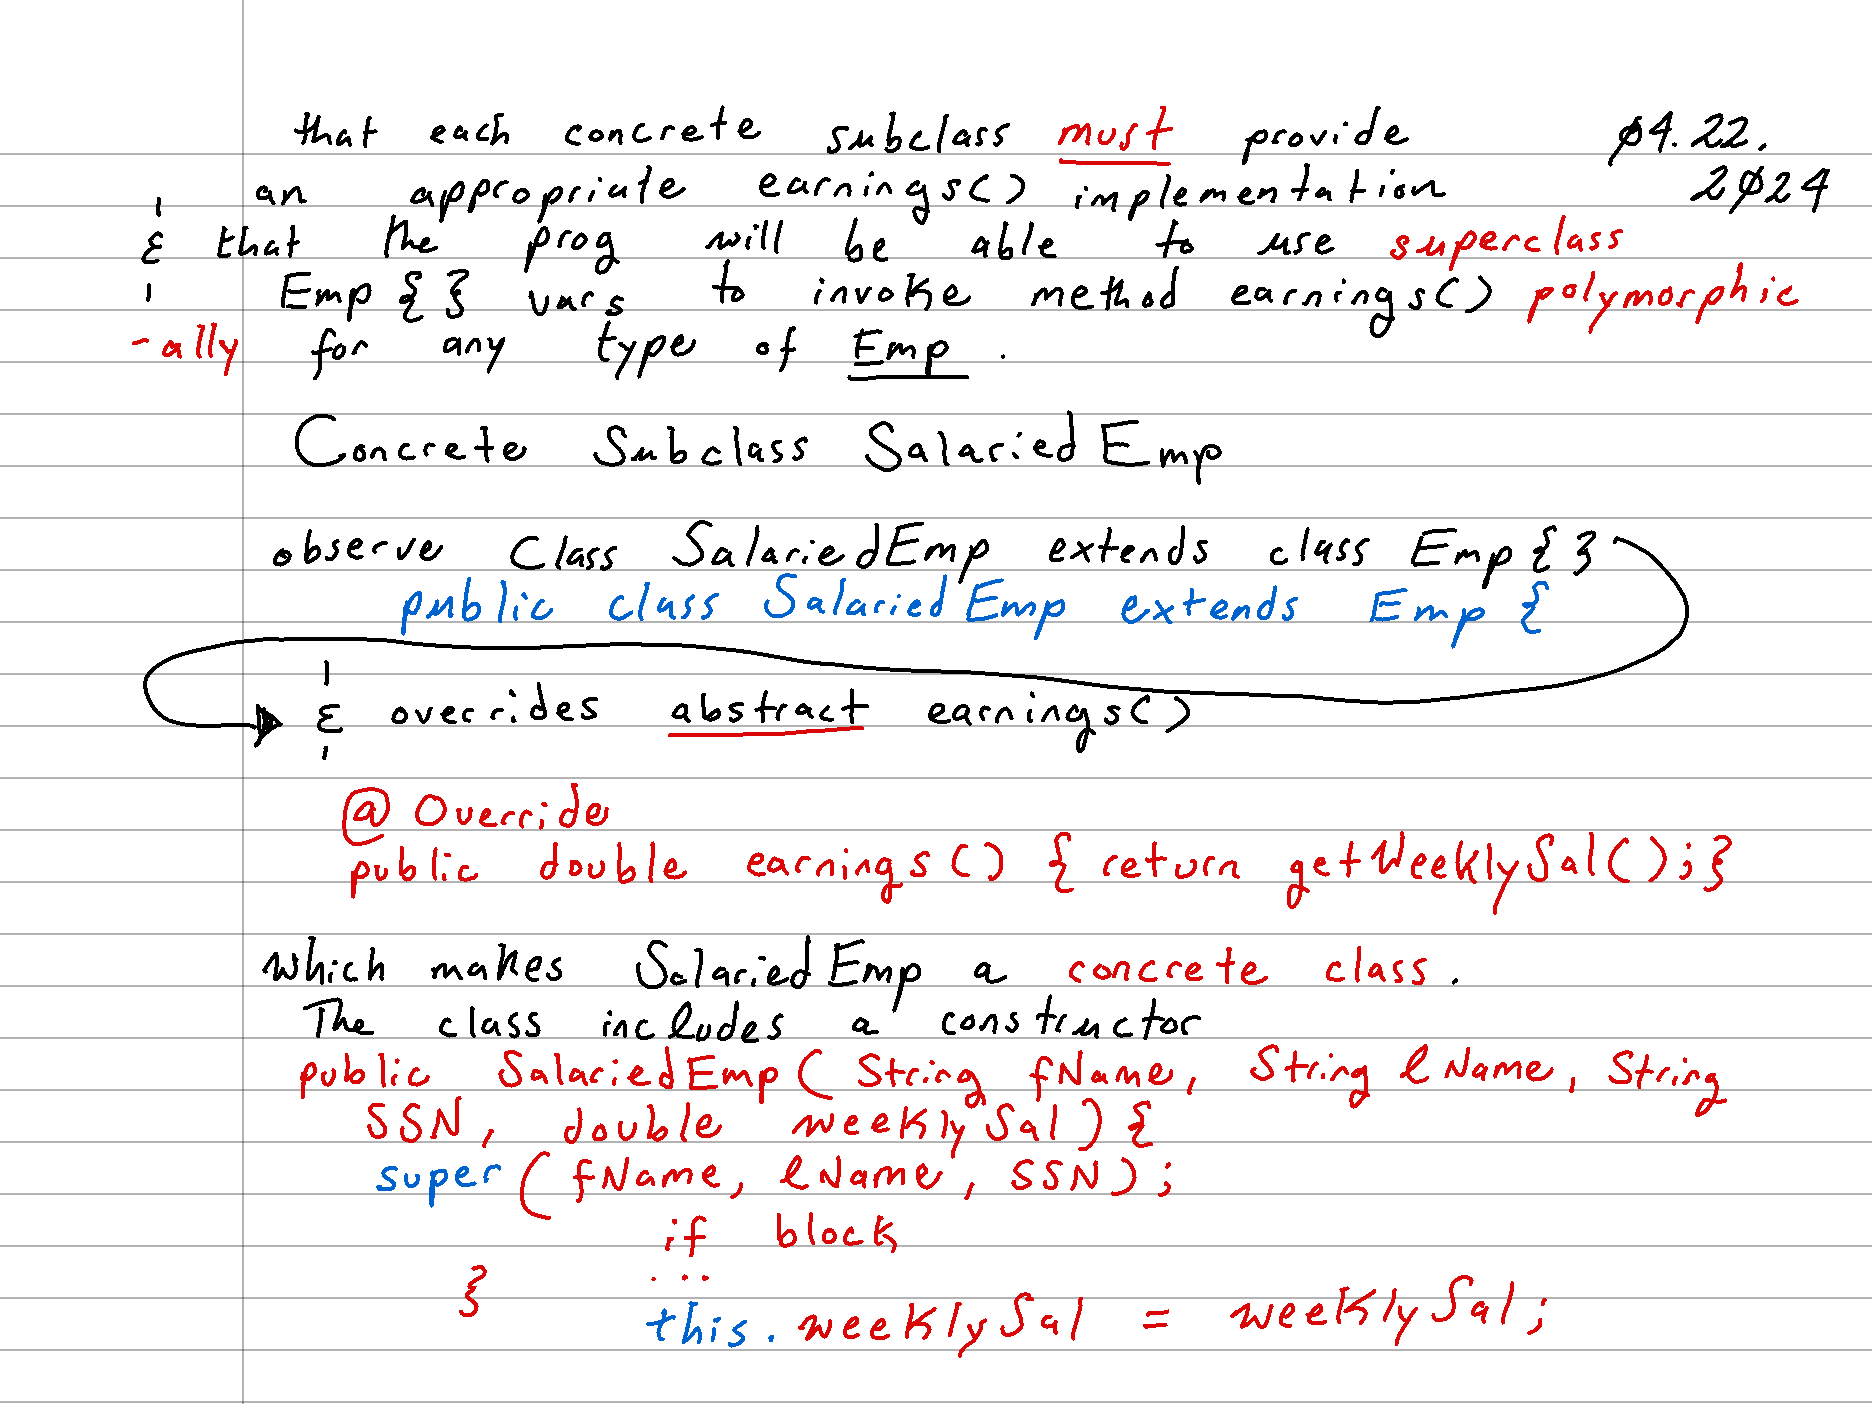 that each concrete subclass must provide ø4.22.
an appropriate earnings() implementation 2ø24
& that the prog will be able to use superclass
Emp { } vars to invoke method earnings() polymorphic
-ally for any type of Emp .
Concrete Subclass SalariedEmp
observe Class SalariedEmp extends class Emp{ }
public class SalariedEmp extends Emp {
& overrides abstract earnings()
@Override
public double earnings() { return getWeeklySal(); }
which makes SalariedEmp a concrete class.
The class includes a constructor
public SalariedEmp( String fName, String lName, String
SSN, double weeklySal) {
super( fName, lName, SSN);
if block
...
}
this. weeklySal = weeklySal;